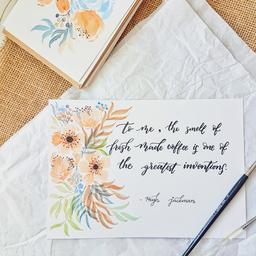 to me, the smell of
fresh made coffee is one of
the greatest inventions.
- Hugh Jackman